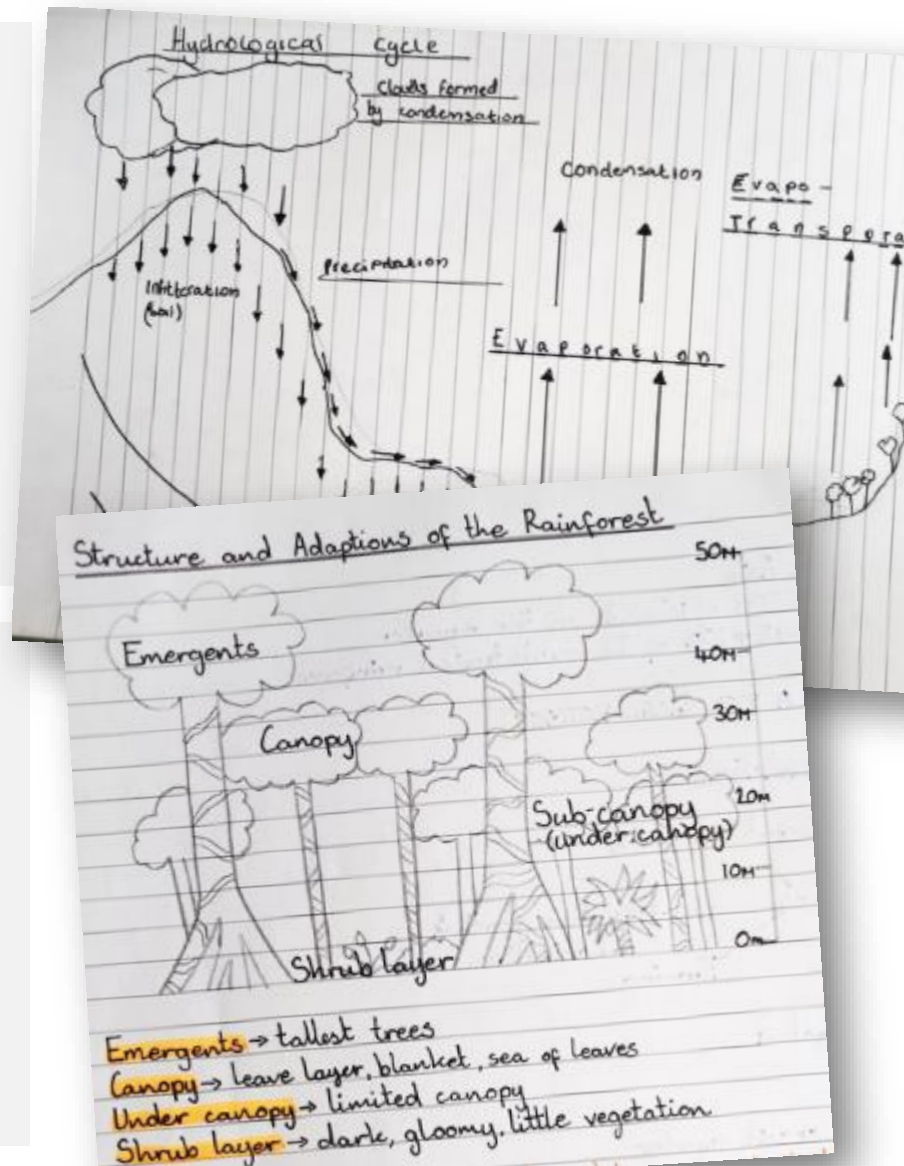 Hydrological Cycle
Clouds formed
by condensation
Condensation
Evapo-
Transpora
Precipitation
Infilteration
Evaporation
Structure and Adaptions of the Rainforest
50m
Emergents
40m
30m
Canopy
20m
Sub-canopy
(under canopy)
10m
0m
Shrub layer
Emergents → tallest trees
Canopy → leave layer, blanket, sea of leaves
Under canopy → limited canopy
Shrub layer → dark, gloomy. little vegetation